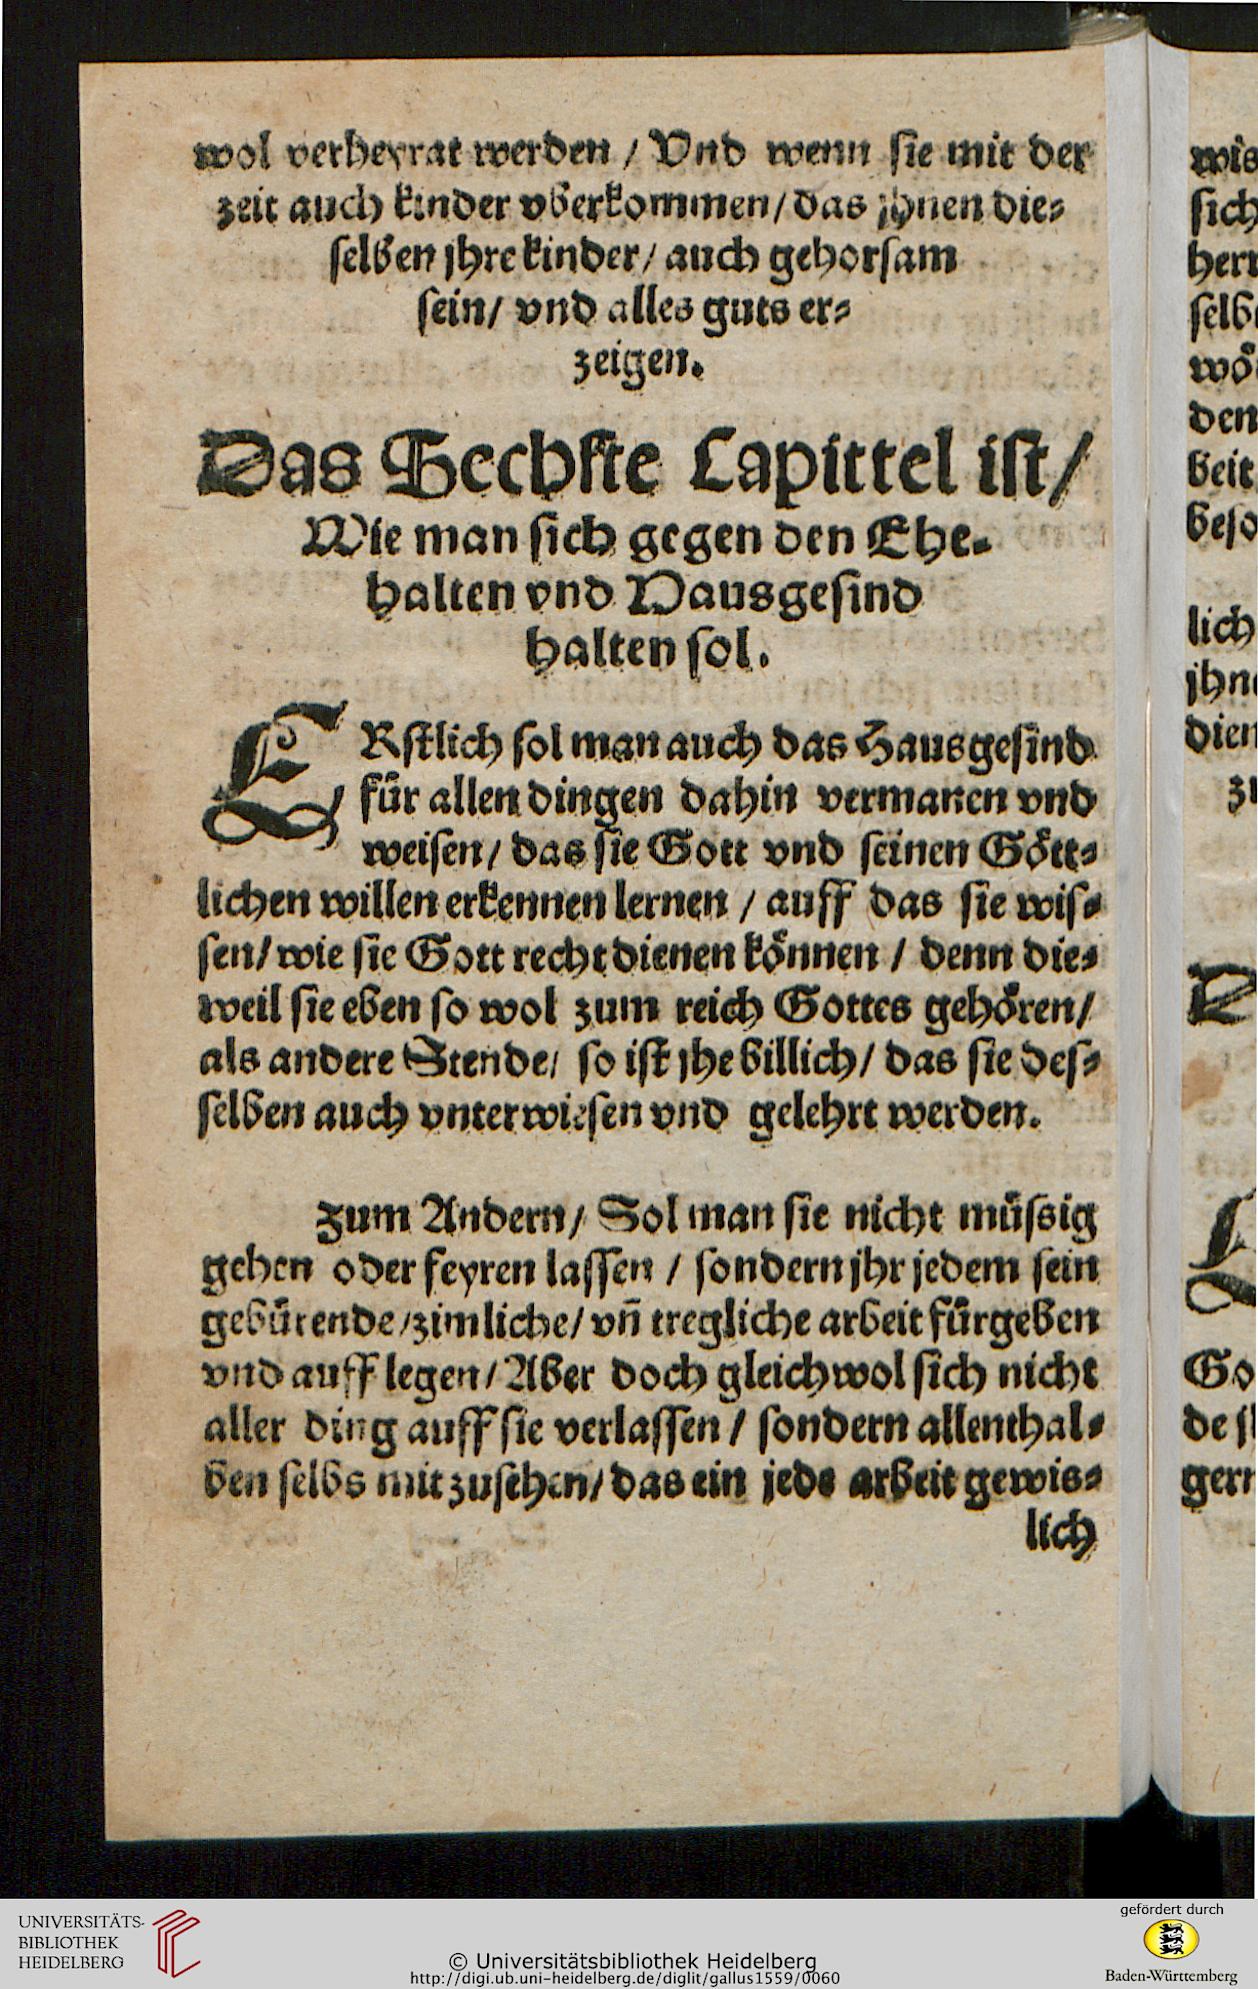 wol verheyrat werden / Vnd wenn sie mit der
zeit auch kinder vberkommen / das jhnen die⸗
selben jhre kinder / auch gehorsam
sein / vnd alles guts er⸗
zeigen.
Das Sechste Capittel ist /
Wie man sich gegen den Ehe⸗
halten vnd Hausgesind
halten sol.
ERstlich sol man auch das Hausgesind
für allen dingen dahin vermanen vnd
weisen / das sie Gott vnd seinen Gött⸗
lichen willen erkennen lernen / auff das sie wis⸗
sen / wie sie Gott recht dienen können / denn die⸗
weil sie eben so wol zum reich Gottes gehören /
als andere Stende / so ist jhe billich / das sie des⸗
selben auch vnterwiesen vnd gelehrt werden.
Zum Andern / Sol man sie nicht müssig
gehen oder feyren lassen / sondern jhr jedem sein
gebürende / zimliche / vñ tregliche arbeit fürgeben
vnd auff legen / Aber doch gleichwol sich nicht
aller ding auff sie verlassen / sondern allenthal⸗
ben selbs mit zusehen / das ein jede arbeit gewis⸗
lich
wis
sich
herr
selb
wö
den
beit
beso
lich
jhn
dien
zu
D
Go
de
gern
UNIVERSITÄTS-
BIBLIOTHEK
HEIDELBERG
© Universitätsbibliothek Heidelberg
http://digi.ub.uni-heidelberg.de/diglit/gallus1559/0060
gefördert durch
Baden-Württemberg